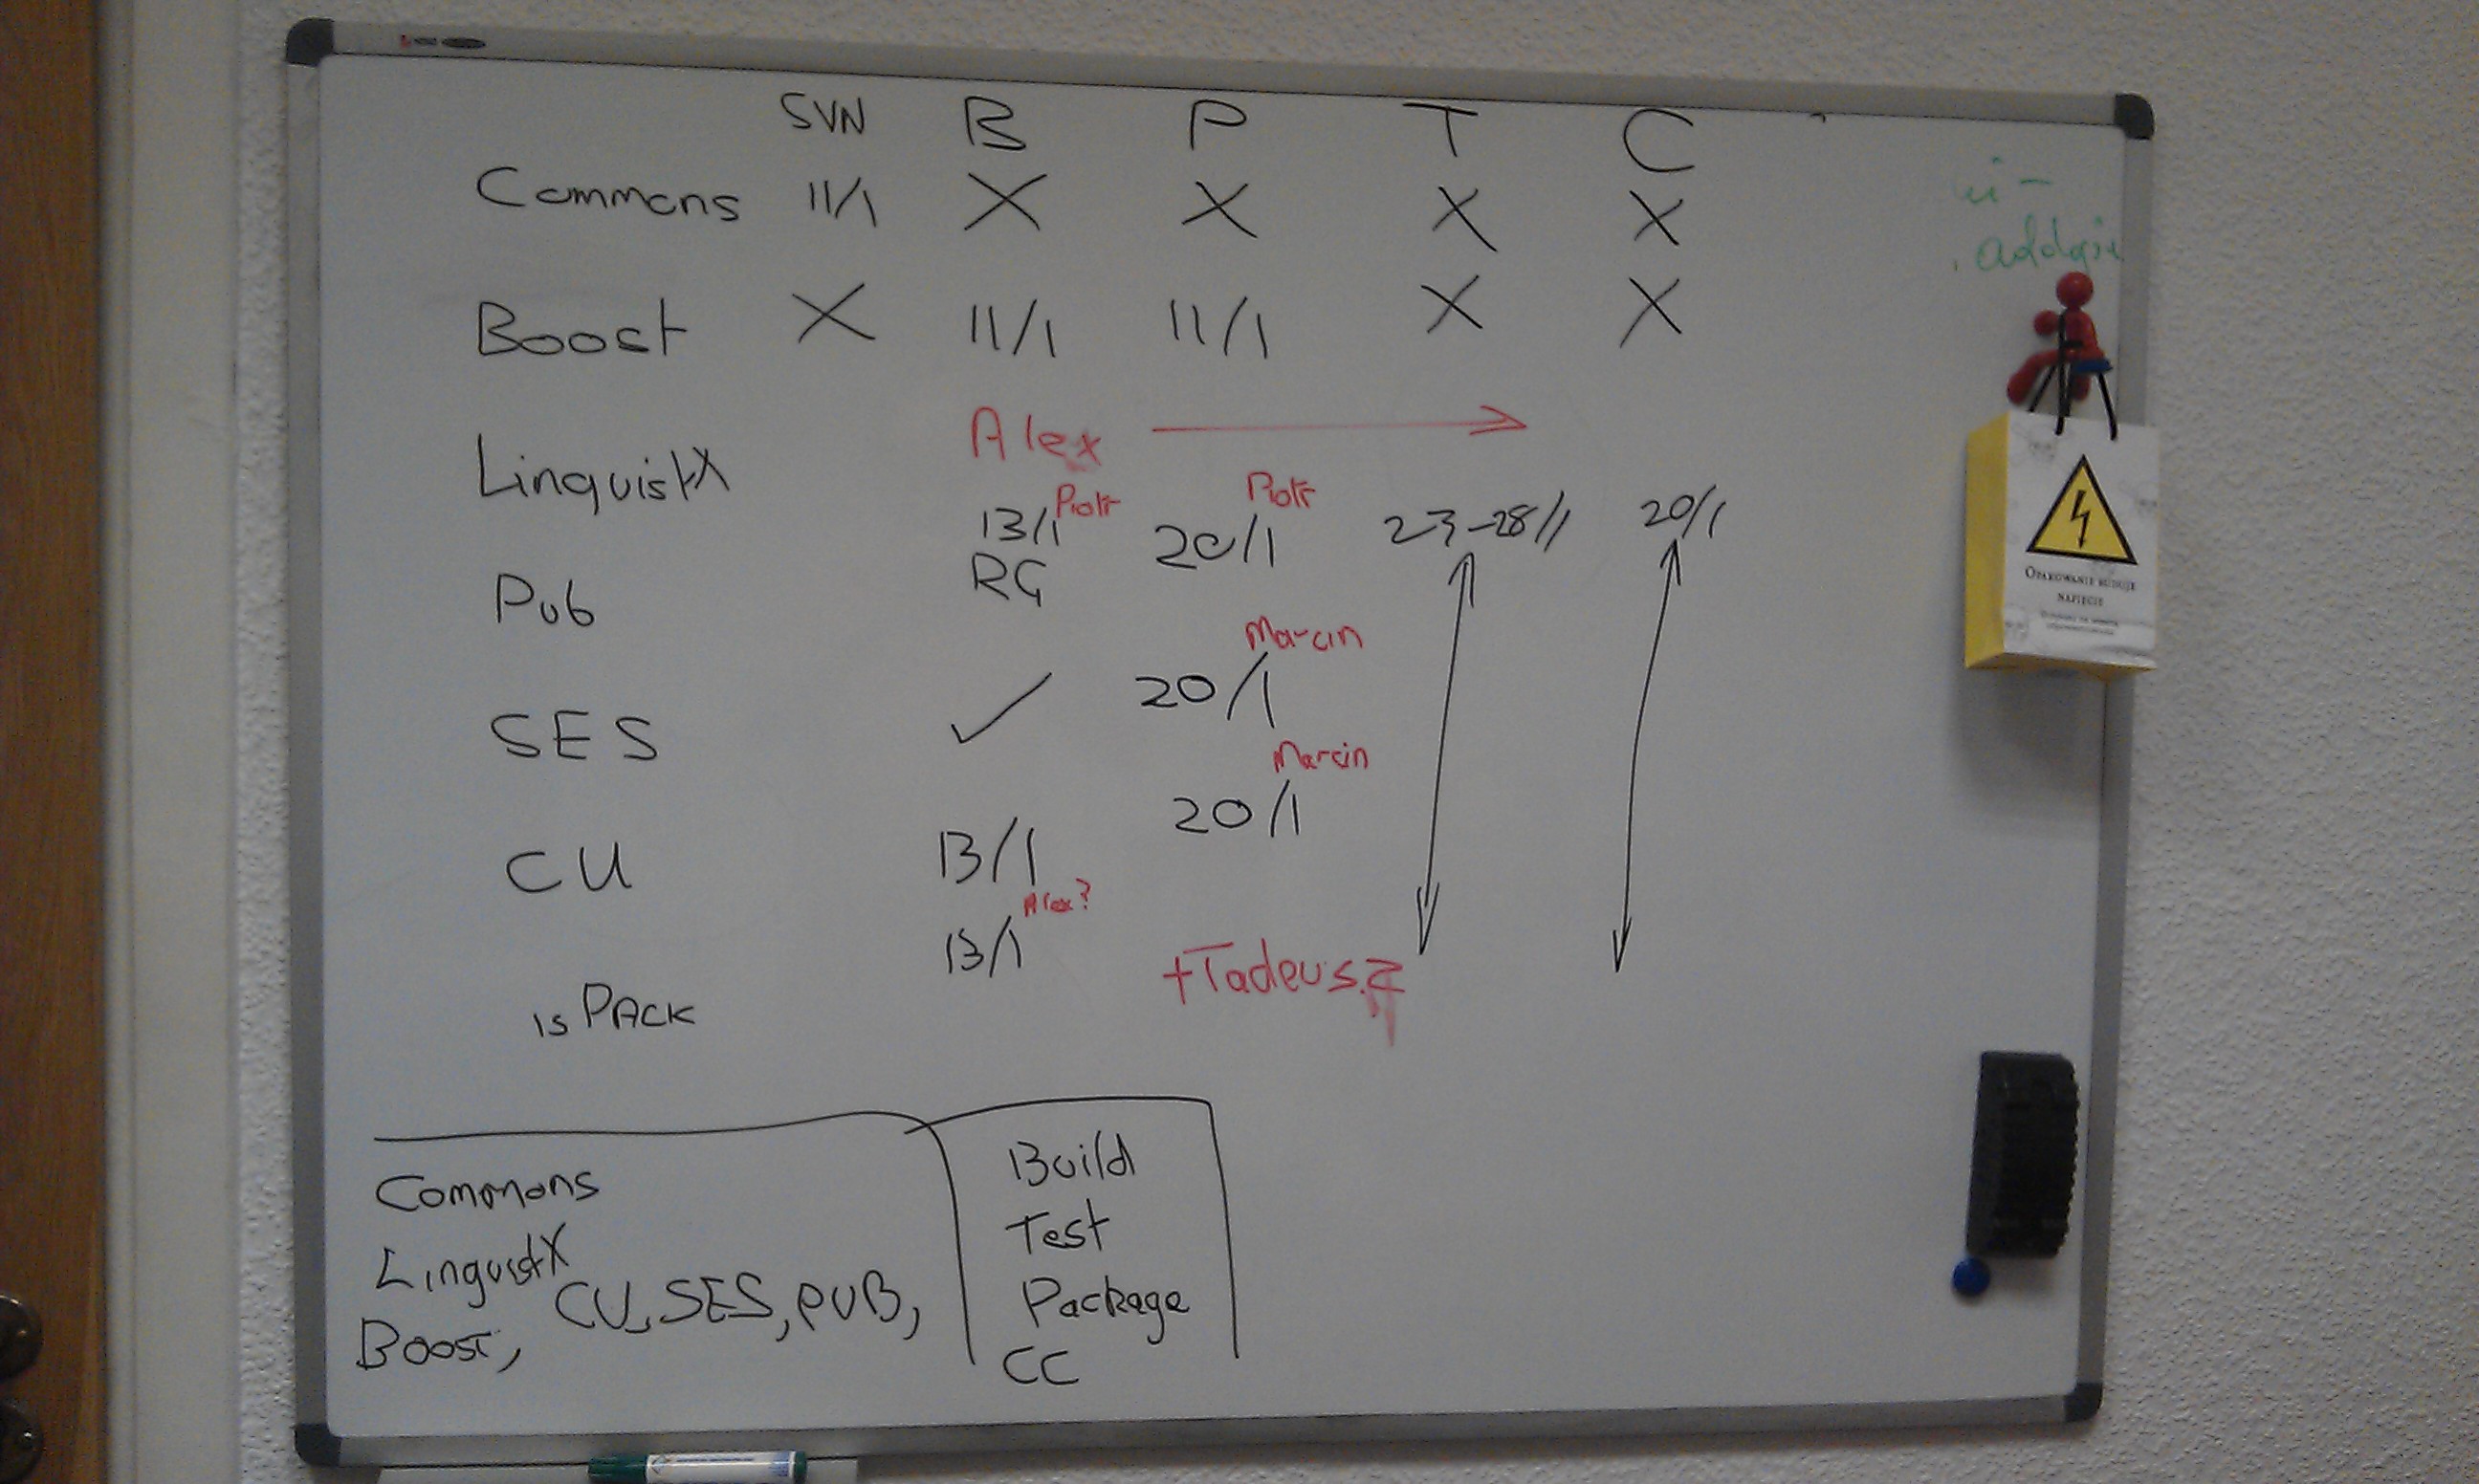 SVN B P T C
Commons 11/1 X X X X
Boost X 11/1 11/1 X X
Alex
LinguistX
Piotr Piotr
13/1 20/1 23-28/1 20/1
RG
Pub
Marcin
SES ✓ 20/1
Marcin
20/1
CU 13/1
Alex?
13/1
+Tadeusz
is PACK
Commons
LinguistX
CU, SES, PUB,
Boost,
Build
Test
Package
CC
OPAKOWANIE BUDUJE
NAPIĘCIE